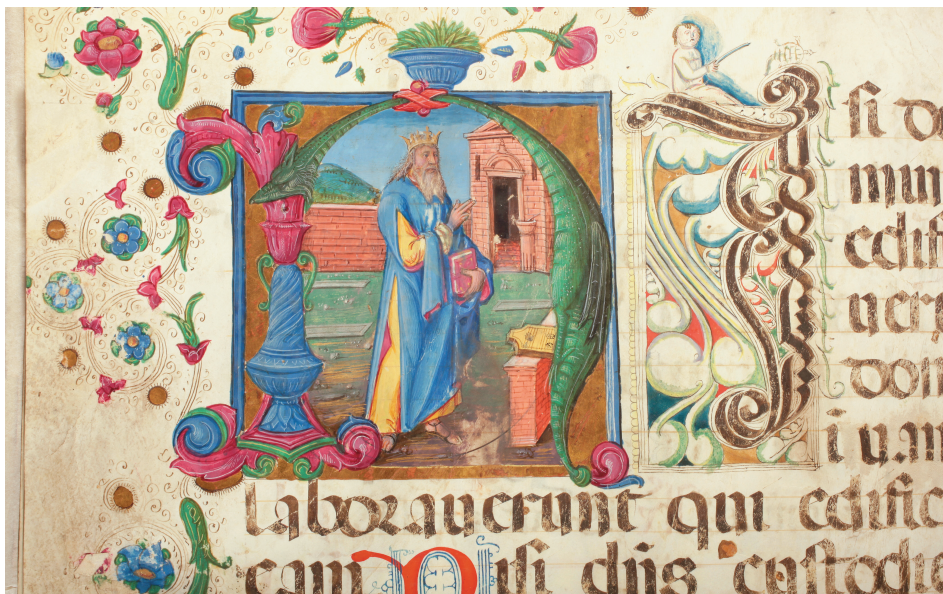 NIsi do
min
edif
ueri
dom
i u.in
laborauerunt qui edific
eam Nisi dns custodie